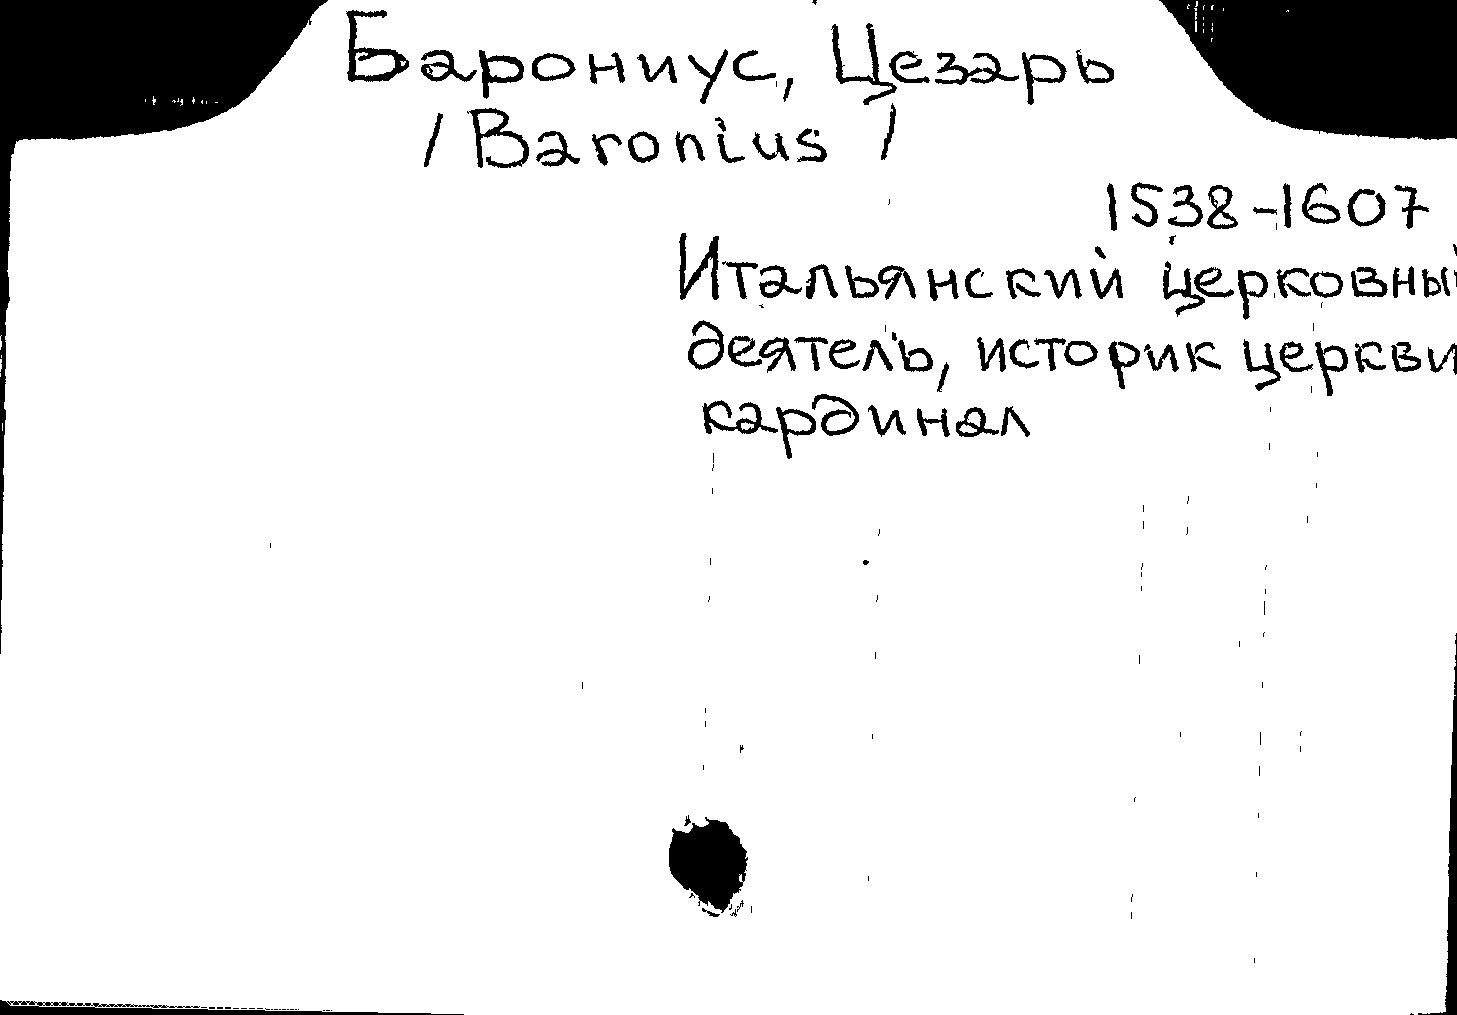 Барониус, Цезарь
/ Baronius /
1538-1607
Итальянский церковный
деятель, историк церкви
кардинал